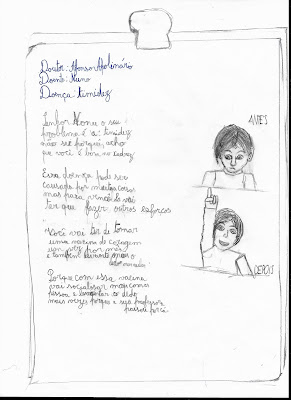 Doutor: Afonso Apolinário
Doente: Nuno
Doença: timidez
Senhor Nuno o seu
problema é a: timidez
não sei porquê, acho
que você é bom no xadrez
Essa doença pode ser
causada por muitas coisas
mas para vencê-la vai
ter que fazer outros esforços
Você vai ter de tomar
uma vacina de coragem
um vez por mês
e também
Porque com essa vacina
vai socializar mais com a
pessoa e levantar o dedo
mais vezes porque a sua professora
ANTES
DEPOIS